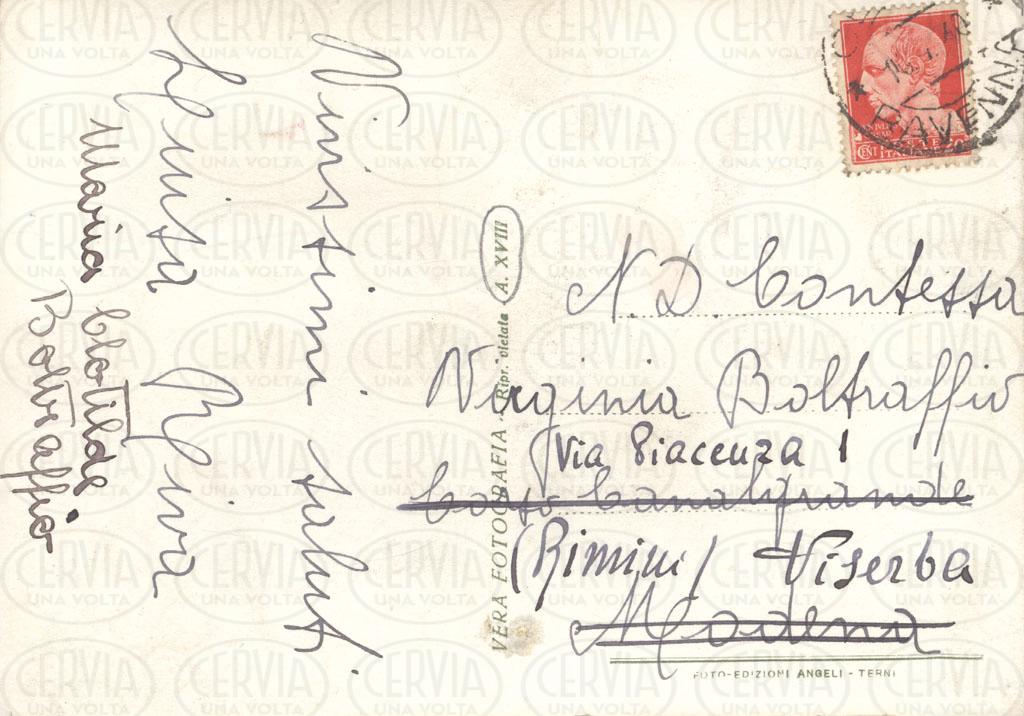 Vivissimi saluti
Maria Clotilde
Boltraffio
VERA FOTOGRAFIA - Ripr. vietata A. XVIII
RAVENNA
CENT
N. D. Contessa
Virginia Boltraffio
Via Piacenza 1
Corso Canalgrande
(Rimini) Viserba
Modena
FOTO-EDIZIONI ANGELI - TERNI
CERVIA
UNA VOLTA